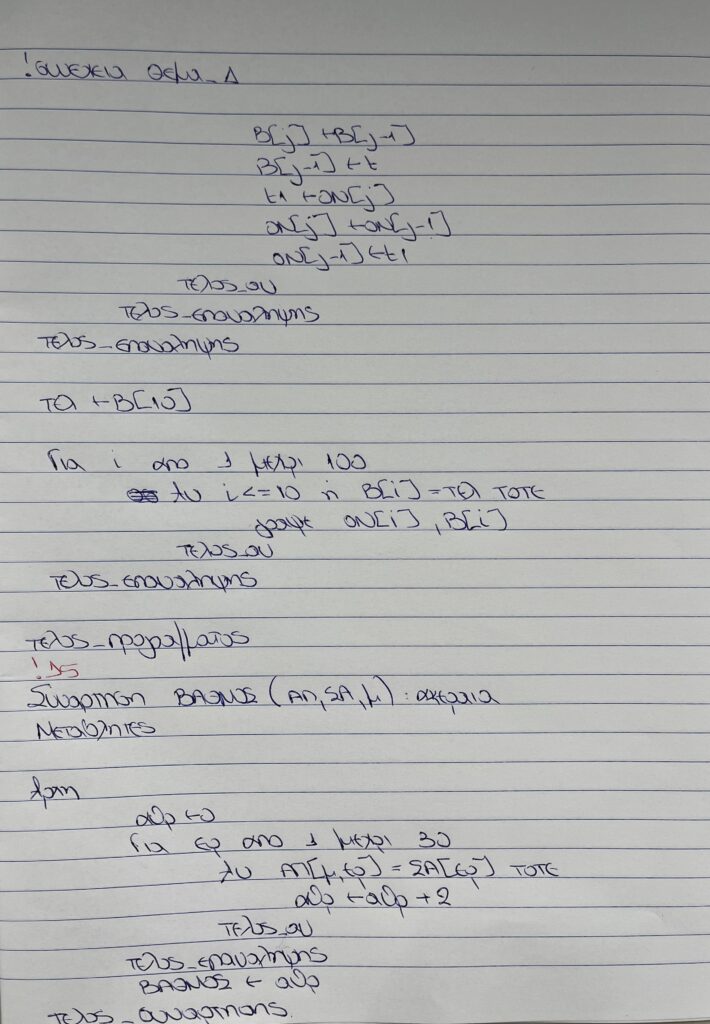 !συνεχεια θεμα_Δ
B[j] ← B[j-1]
B[j-1] ← t
t1 ← ON[j]
ON[j] ← ON[j-1]
ON[j-1] ← t1
τελος_αν
τελος_επαναληψης
τελος_επαναληψης
τελ ← B[10]
Για i απο 1 μεχρι 100
Αν i <= 10 ή B[i] = τελ ΤΟΤΕ
γραψε ON[i], B[i]
τελος_αν
τελος_επαναληψης
τελος_προγραμματος
!Δ5
Συναρτηση ΒΑΘΜΟΣ (ΑΠ, ΣΑ, μ) : ακεραια
Μεταβλητες
Αρχη
αθρ ← 0
Για ερ απο 1 μεχρι 30
Αν ΑΠ[μ,ερ] = ΣΑ[ερ] ΤΟΤΕ
αθρ ← αθρ + 2
τελος_αν
τελος_επαναληψης
ΒΑΘΜΟΣ ← αθρ
τελος_συναρτησης